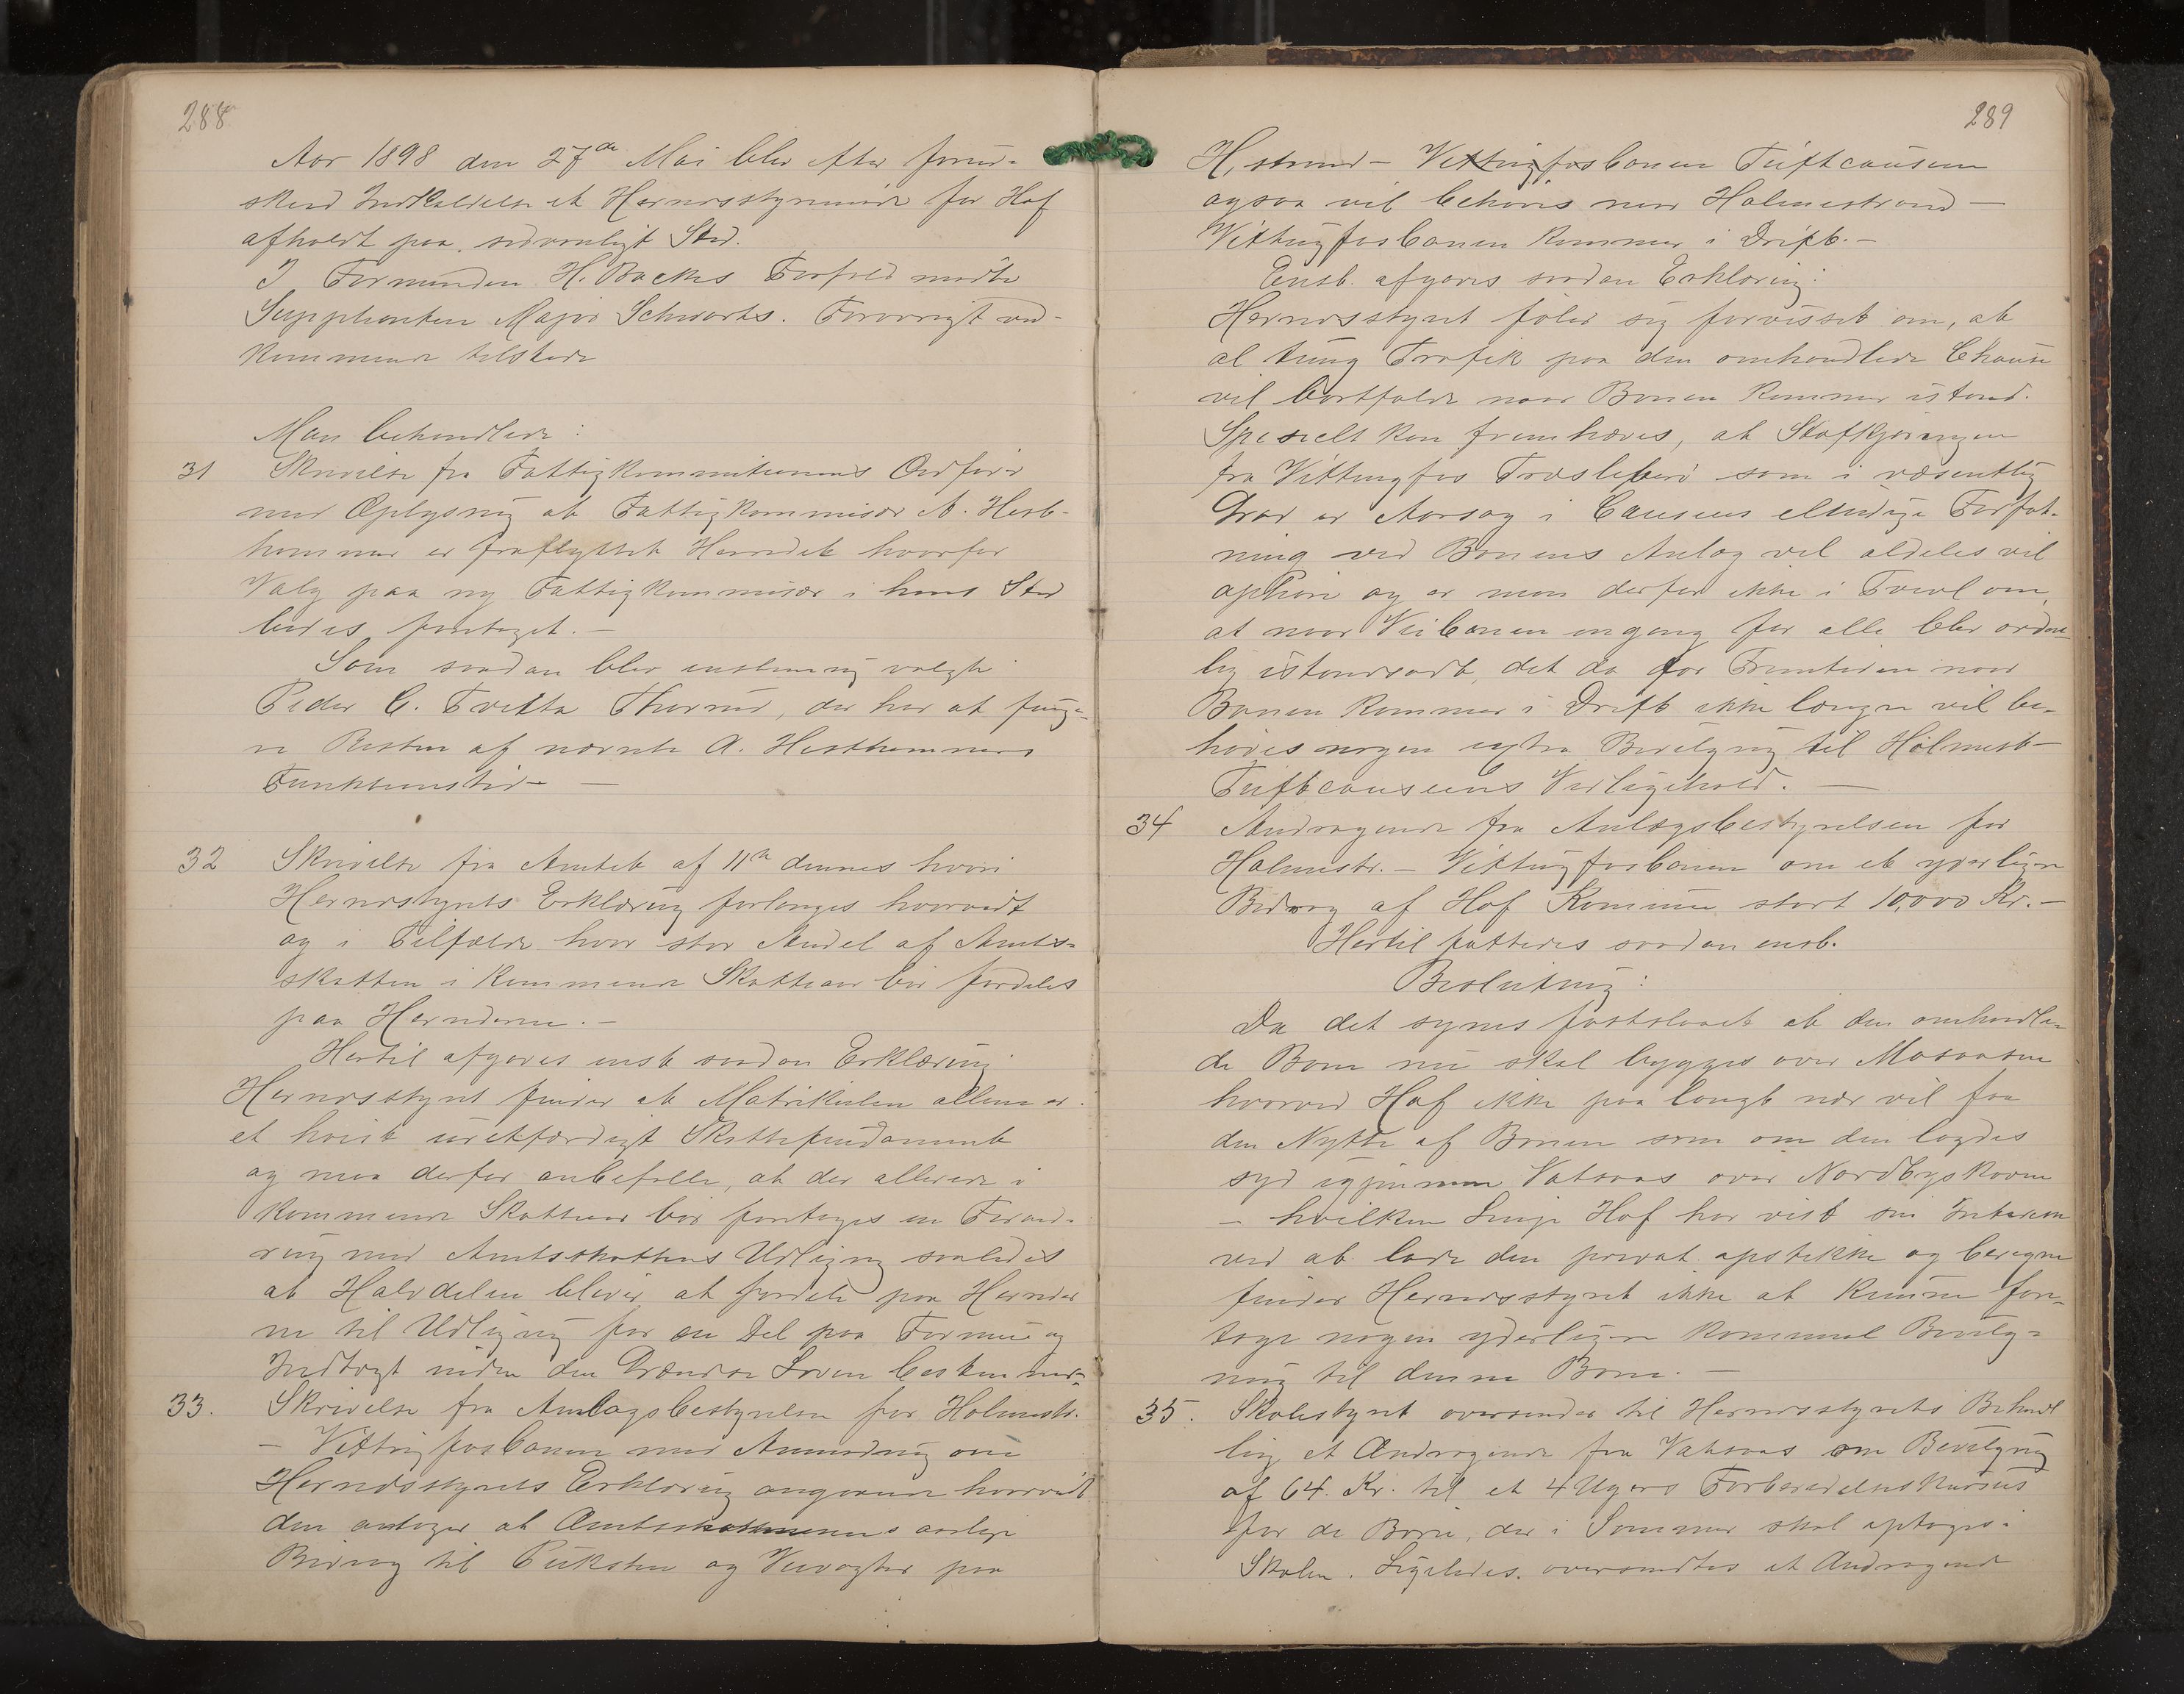 288
Aar 1898 den 27de Mai blev efter forud-
skend Indkaldelse et Herredsstyremøde for Hof
afholdt paa sedvanligt Sted.
I Formanden H. Backes Forfald mødte
Suppleanten Major Schwartz. Forøvrigt ved-
kommende tilstede
Man behandlede:
31 Skrivelse fra Fattigkommissionens Ordfører
med Oplysning at Fattigkommisær A. Hest-
hammer er fraflyttet Herredet hvorfor
Valg paa ny Fattigkommisær i hans Sted
bedes foretaget.-
Som saadan blev enstemmig valgte
Peder C. Tveita Thorrud, der har at funge-
re Resten af nævnte A. Hesthammers
Funktionstid -
32 Skrivelse fra Amtet af 11te dennes hvori
Herredsstyrets Erklæring forlanges hvorvidt
og i Tilfælde hvor stor Andel af Amts-
skatten i kommende Skatteaar bør fordeles
paa Herrederne.-
Hertil afgaves enst saadan Erklæring:
Herredsstyret finder at Matrikulen allene er
et høist uretfærdigt Skattefundament
og maa derfor anbefalle, at der allerede i
kommende Skatteaar bør foretages en Forand-
ring med Amtsskattens Udligning saaledes
at Halvdelen bliver at fordele paa Herreder
ne til Udligning for en Del paa Formue og
Indtægt inden den Grændse Loven bestemmer-
33. Skrivelse fra Anlægsbestyrelsen for Holmestr.
- Vittingfosbanen med Anmodning om
Herredsstyrets Erklæring angaaende hvorvidt
den antager at Amtskommunens aarlige
Bidrag til Puksten og Veivogter paa
289
H,strand - Vittingfosbanen Tuftcauseen
ogsaa vil behøves naar Holmestrand -
Vittingfosbanen kommer i Drift.-
Enst. afgaves saadan Erklæring:
Herredsstyret føler sig forvisset om, at
al tung Trafik paa den omhandlede Chause
vil bortfalde naar Banen kommer istand.
Specielt kan fremhæves, at Stofkjøringen
fra Vittingfos Træsliberi som i væsentlig
Grad er Aarsag i Causeens elendige Forfat-
ning ved Banens Anlæg vel aldeles vil
ophøre og er man derfor ikke i Tvivl om,
at naar Veibanen engang for alle blir ordent-
lig istandsadt, det da for Fremtiden naar
Banen kommer i Drift ikke længre vil be-
høves nogen extra Bevilgning til Holmest-
Tuftcauseens Vedligehold. -
34 Andragende fra Anlægsbestyrelsen for
Holmestr. - Vittingfosbanen om et yderligere
Bidrag af Hof Komune stort 10,000 Kr.-
Hertil fattedes saadan enst.
Beslutning:
Da det synes fastslaaet at den omhandle-
de Bane nu skal bygges over
hvorved Hof ikke paa langt nær vil faa
den Nytte af Banen som om den lagdes
syd igjennem Vatsaas over Nordbygskoven
- hvilken Linje Hof har vist sin Interesse
ved at lade den privat opstikke og beregne
finder Herredsstyret ikke at kunne fore-
tage nogen yderligere kommunal Bevilg-
ning til denne Bane. -
35. Skolestyret oversender til Herredsstyrets Behand
ling et Andragende fra Vatsaas om Bevilgning
af 64. Kr. til et 4 Ugers Forberedelseskursus
for de Børn, der i Sommer skal optages i
Skolen. Ligeledes oversendtes et Andragende